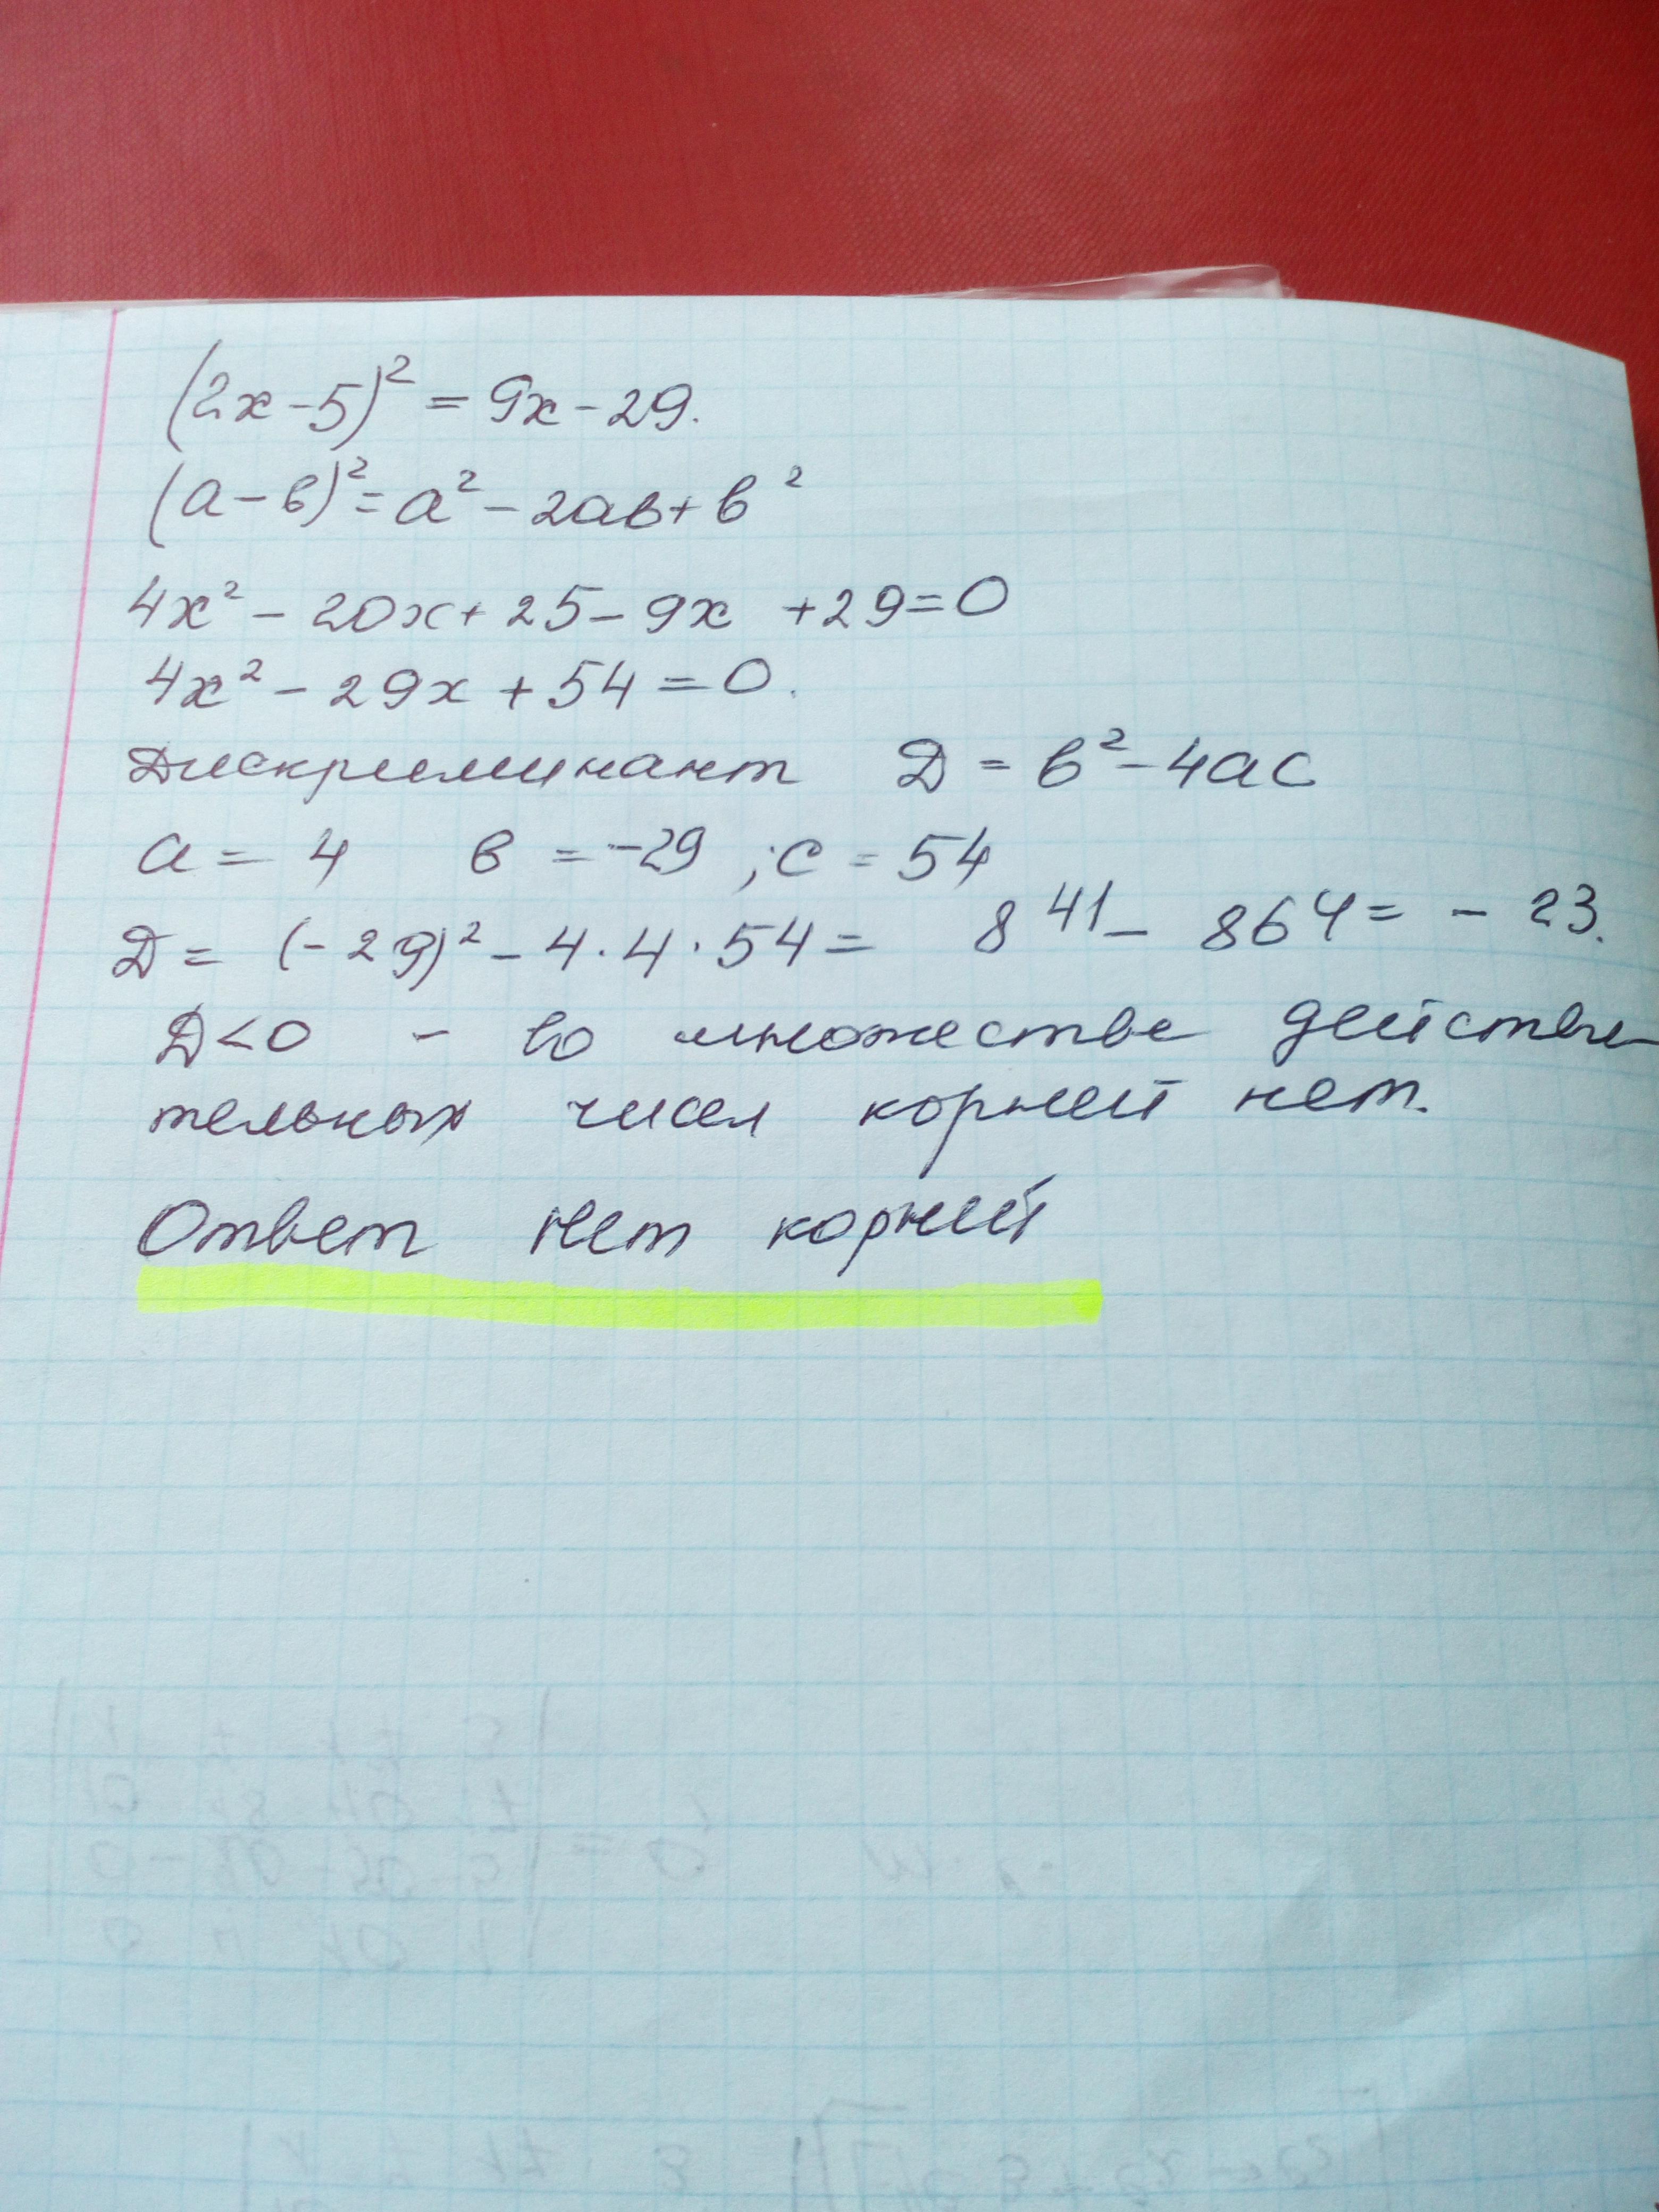 (2x-5)² = 9x-29.
(a-в)²=a²-2aв+в²
4x²-20x+25-9x +29=0
4x²-29x+54=0.
Дискриминант Д = в²-4ac
a= 4 в =-29 ; c = 54
Д= (-29)²-4·4·54= 841- 864= - 23.
Д<0 - во множестве действи-
тельных чисел корней нет.
Ответ нет корней